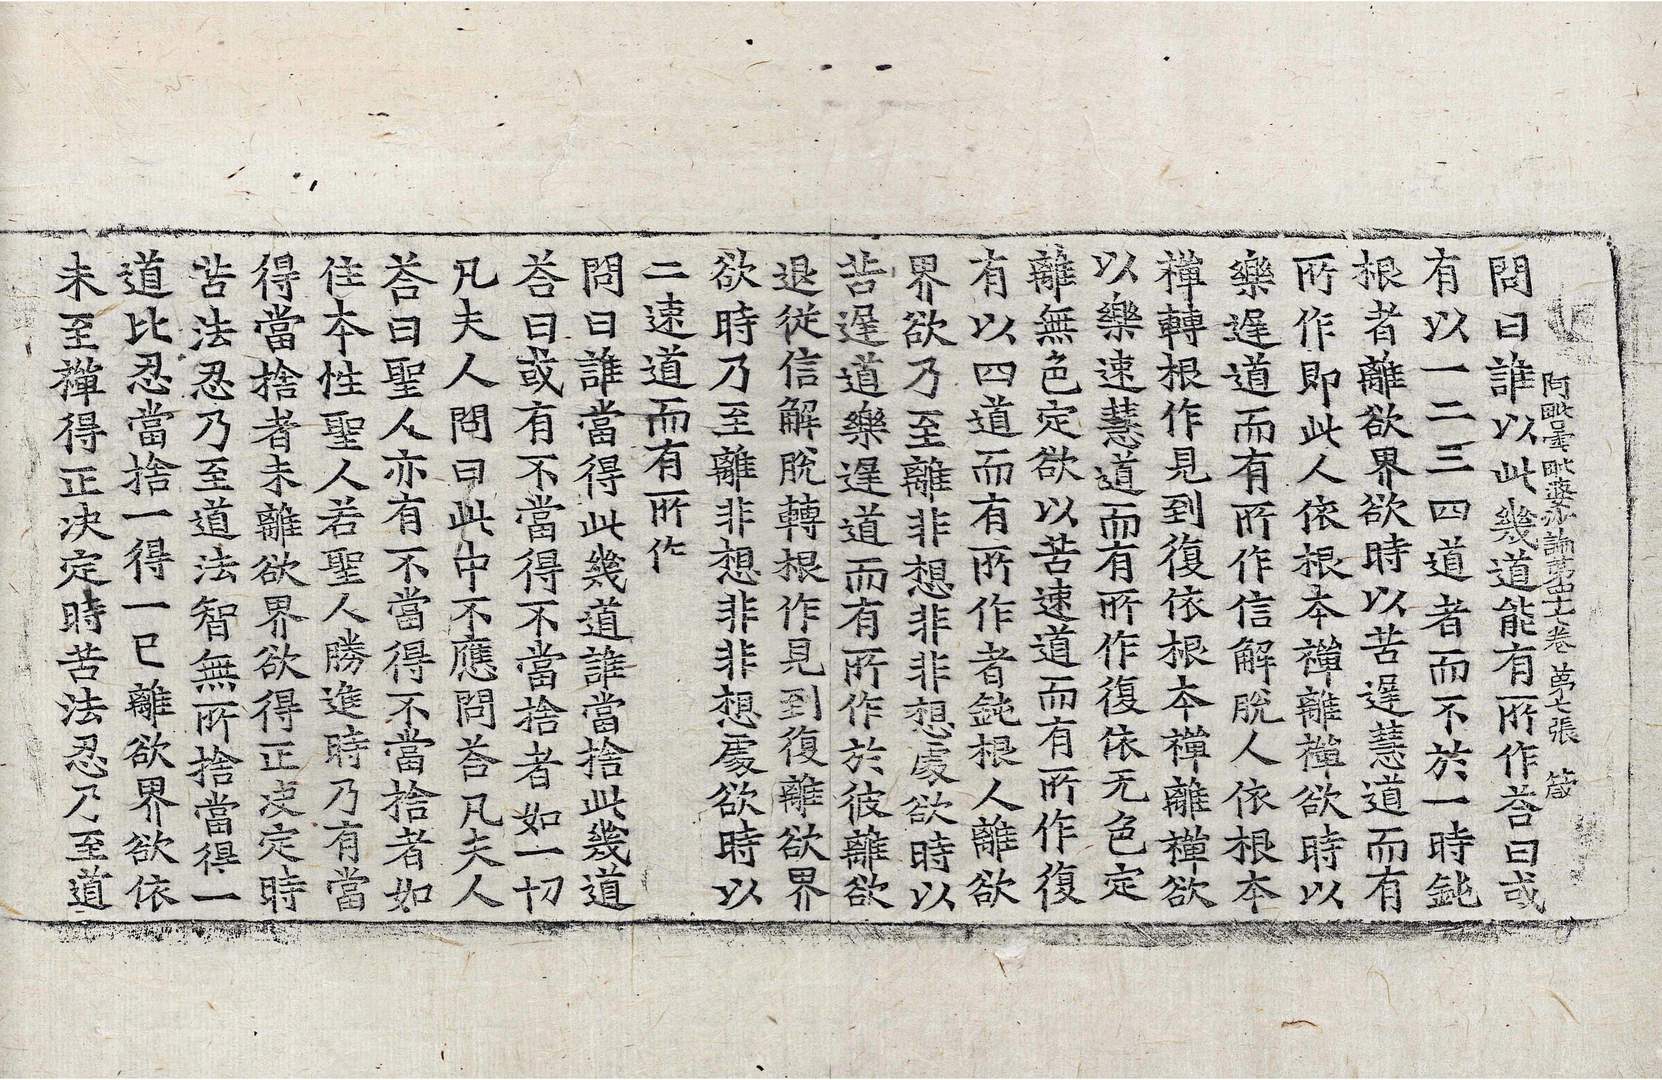 阿毗曇毗婆沙論第四十七卷 第七張 箴
問曰誰以此幾道能有所作荅曰或
有以一二三四道者而不於一時鈍
根者離欲界欲時以苦遲慧道而有
所作即此人依根本禪離禪欲時以
樂遲道而有所作信解脫人依根本
禪轉根作見到復依根本禪離禪欲
以樂速慧道而有所作復依无色定
離無色定欲以苦速道而有所作復
有以四道而有所作者鈍根人離欲
界欲乃至離非想非非想處欲時以
苦遲道樂遲道而有所作於彼離欲
退從信解脫轉根作見到復離欲界
欲時乃至離非想非非想處欲時以
二速道而有所作
問曰誰當得此幾道誰當捨此幾道
荅曰或有不當得不當捨者如一切
凡夫人問曰此中不應問荅凡夫人
荅曰聖人亦有不當得不當捨者如
住本性聖人若聖人勝進時乃有當
得當捨者未離欲界欲得正決定時
苦法忍乃至道法智無所捨當得一
道比忍當捨一得一已離欲界欲依
未至禪得正決定時苦法忍乃至道